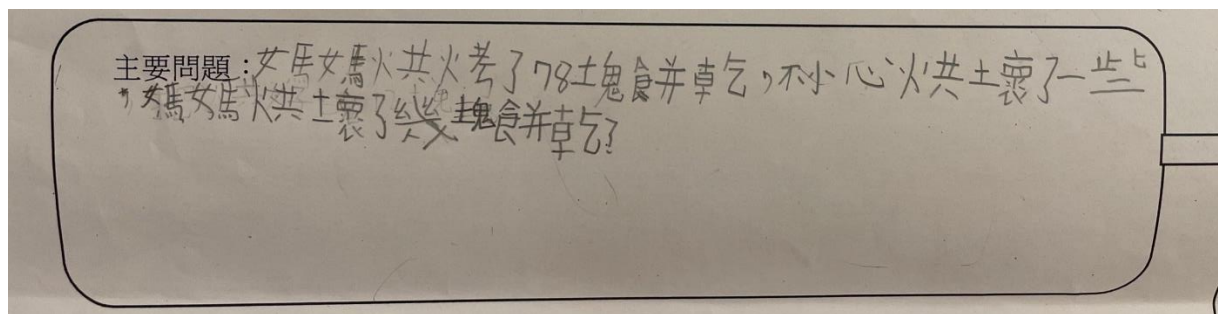 主要問題：媽媽烘烤了78塊餅乾，不小心烘壞了一些
，媽媽烘壞了幾塊餅乾？